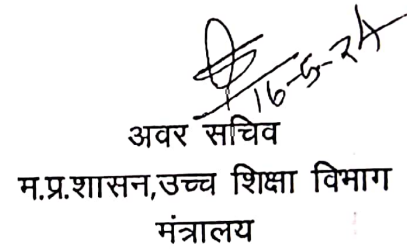 16-5-24
अवर सचिव
म.प्र.शासन,उच्च शिक्षा विभाग
मंत्रालय